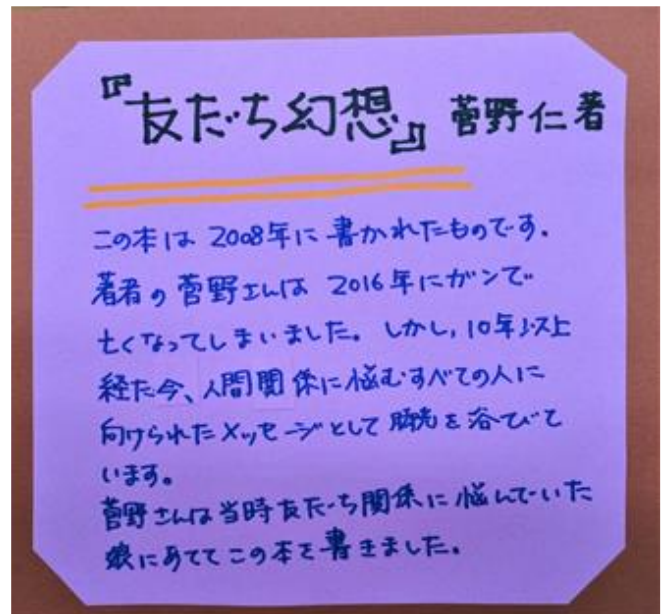 『友だち幻想』 菅野仁著
この本は 2008年に書かれたものです。
著者の菅野さんは 2016年にガンで
亡くなってしまいました。しかし、10年以上
経た今、人間関係に悩むすべての人に
向けられたメッセージとして脚光を浴びて
います。
菅野さんは当時友だち関係に悩んでいた
娘にあててこの本を書きました。